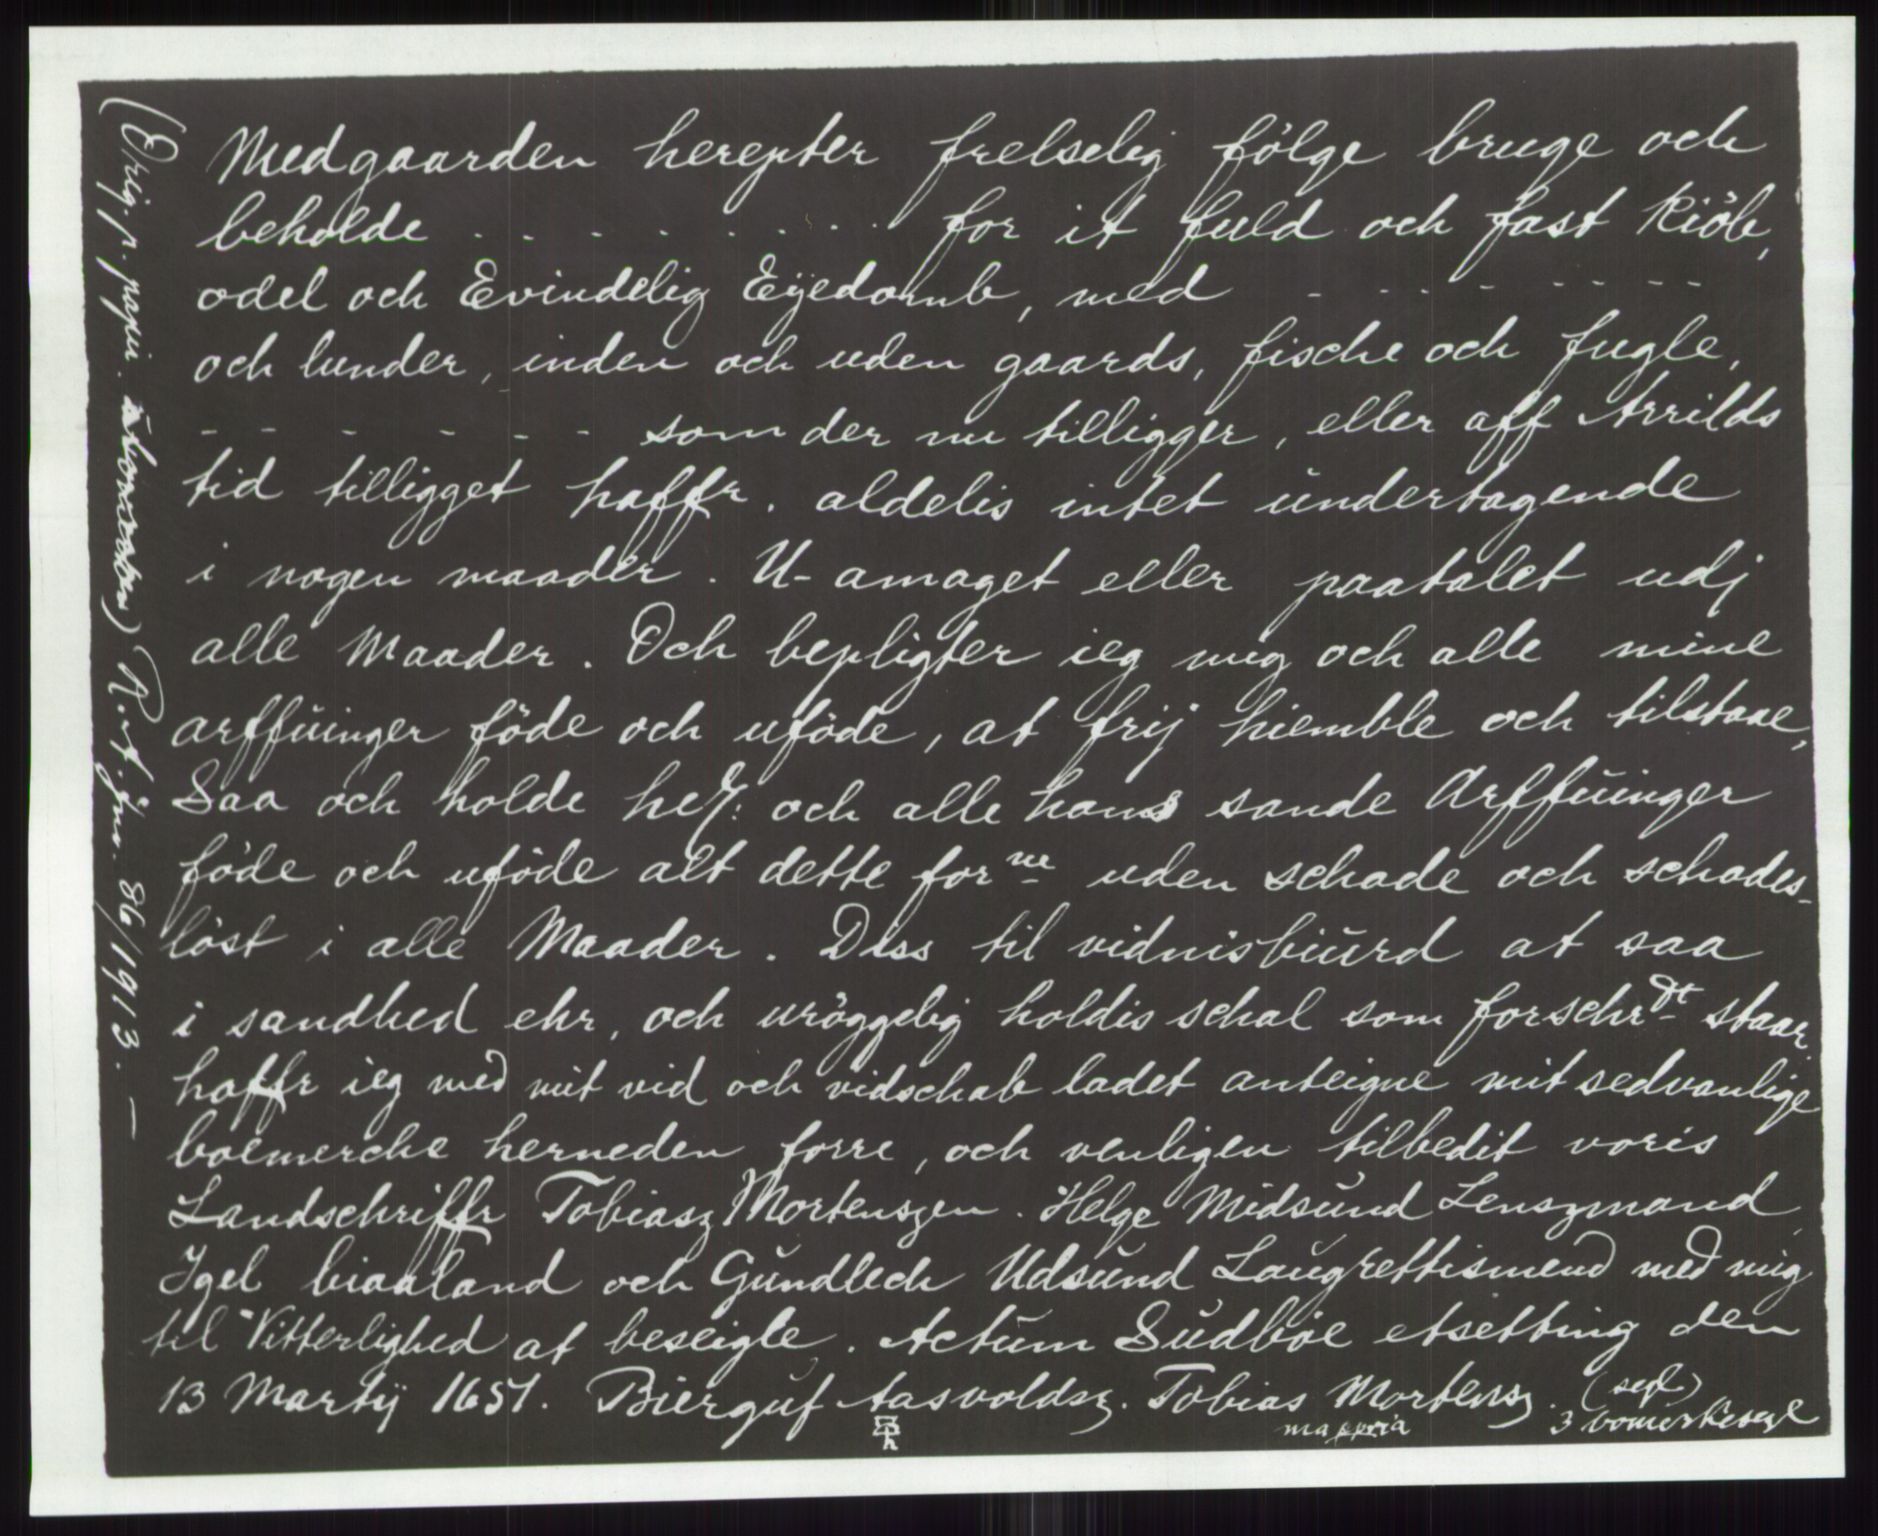 Medgaarden herepter frelselig fölge bruge och
beholde . . . . . . . . . for it fuld och fast kiöb,
odel och Evindelig Eÿedomb, med - - - - - - - -
och lunder, inden och uden gaards, fische och fugle,
- - - - - - - som der nu tilligger, eller aff Arrilds
tid tilligget haffr. aldelis intet undertagende
i nogen maader. U-amaget eller paatalet udj
alle Maader. Och bepligter ieg mig och alle mine
arffüinger föde och uföde, at frij hiemble och tilstaae,
Saa och holde och alle hans sande Arffüinger
föde och uföde alt dette for ne uden schade och schades-
löst i alle Maader. Diss til vidnisbiürd at saa
i sandhed ehr, och uröggelig holdis schal som forschr dt staar.
haffr ieg med mit vid och vidschab ladet anteigne mit sedvanlige
boemerche herneden forre, och venligen tilbedit voris
Landschriffr Tobiasz Mortenszen. Helge Midsund Lenszmand,
Igel biaaland och Gundlech Udsund Laugrettismend med mig
til Vitterlighed at beseigle. Actum Sudböe etsetting den
13 Martij 1651. Bierguf Aasvoldsz. Tobias Mortensz. (segl)
mappria 3 bomerkesegl
(Orig. p. papir. ) R. A. Jnr. 86/1913. —